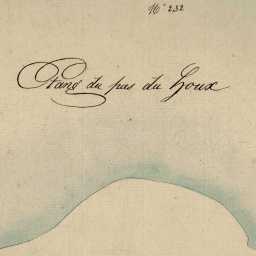 N° 232
Etang du pas du Houx